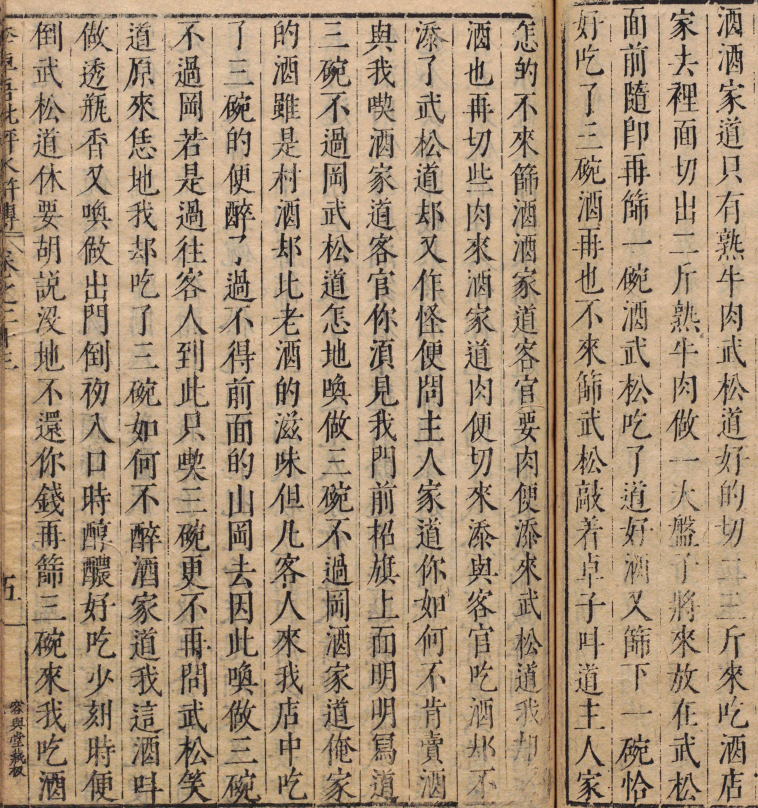 酒酒家道只有熟牛肉武松道好的切二三斤來吃酒店
家去裡面切出二斤熟牛肉做一大盤子將來放在武松
面前隨即再篩一碗酒武松吃了道好酒又篩下一碗恰
好吃了三碗酒再也不來篩武松敲着卓子叫道主人家
怎的不來篩酒酒家道客官要肉便添來武松道我却
酒也再切些肉來酒家道肉便切來添與客官吃酒却不
添了武松道却又作怪便問主人家道你如何不肯賣酒
與我喫酒家道客官你湏見我門前招旗上面明明寫道
三碗不過岡武松道怎地喚做三碗不過岡酒家道俺家
的酒雖是村酒却比老酒的滋味但凢客人來我店中吃
了三碗的便醉了過不得前面的山岡去因此喚做三碗
不過岡若是過往客人到此只喫三碗更不再問武松笑
道原來恁地我却吃了三碗如何不醉酒家道我這酒叫
做透瓶香又喚做出門倒初入口時醇醲好吃少刻時便
倒武松道休要胡說没地不還你錢再篩三碗來我吃酒
李卓吾批評水滸傳 卷之二十三 五 容與堂藏板